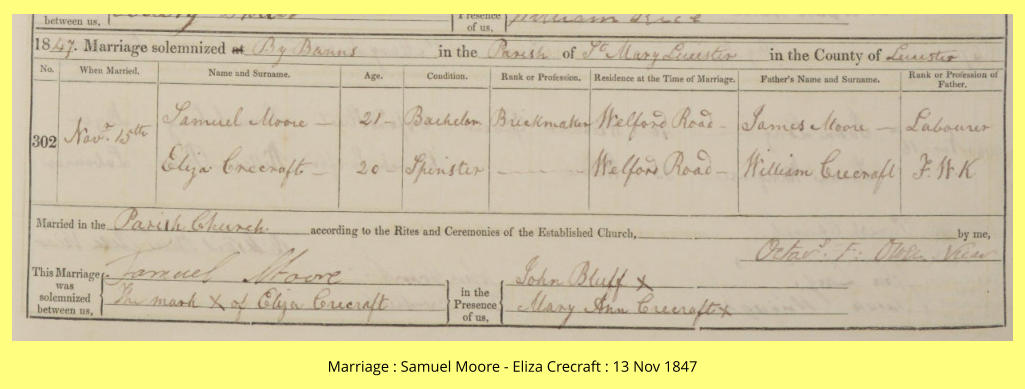 between us,
Presence
of us,
1847. Marriage solemnized at By Banns in the Parish of St. Mary Leicester in the County of Leicester
No. When Married. Name and Surname. Age. Condition. Rank or Profession. Residence at the Time of Marriage. Father's Name and Surname. Rank or Profession of Father.
302 Novr. 15th Samuel Moore — 21 — Bachelor Brickmaker Welford Road — James Moore — Labourer
Eliza Crecraft — 20 Spinster — Welford Road — William Crecraft F. W K
Married in the Parish Church according to the Rites and Ceremonies of the Established Church, by me,
Octavs. F: Owen
This Marriage was solemnized between us, Samuel Moore in the Presence of us, John Bluff x
The mark x of Eliza Crecraft Mary Ann Crecraft x
Marriage : Samuel Moore - Eliza Crecraft : 13 Nov 1847